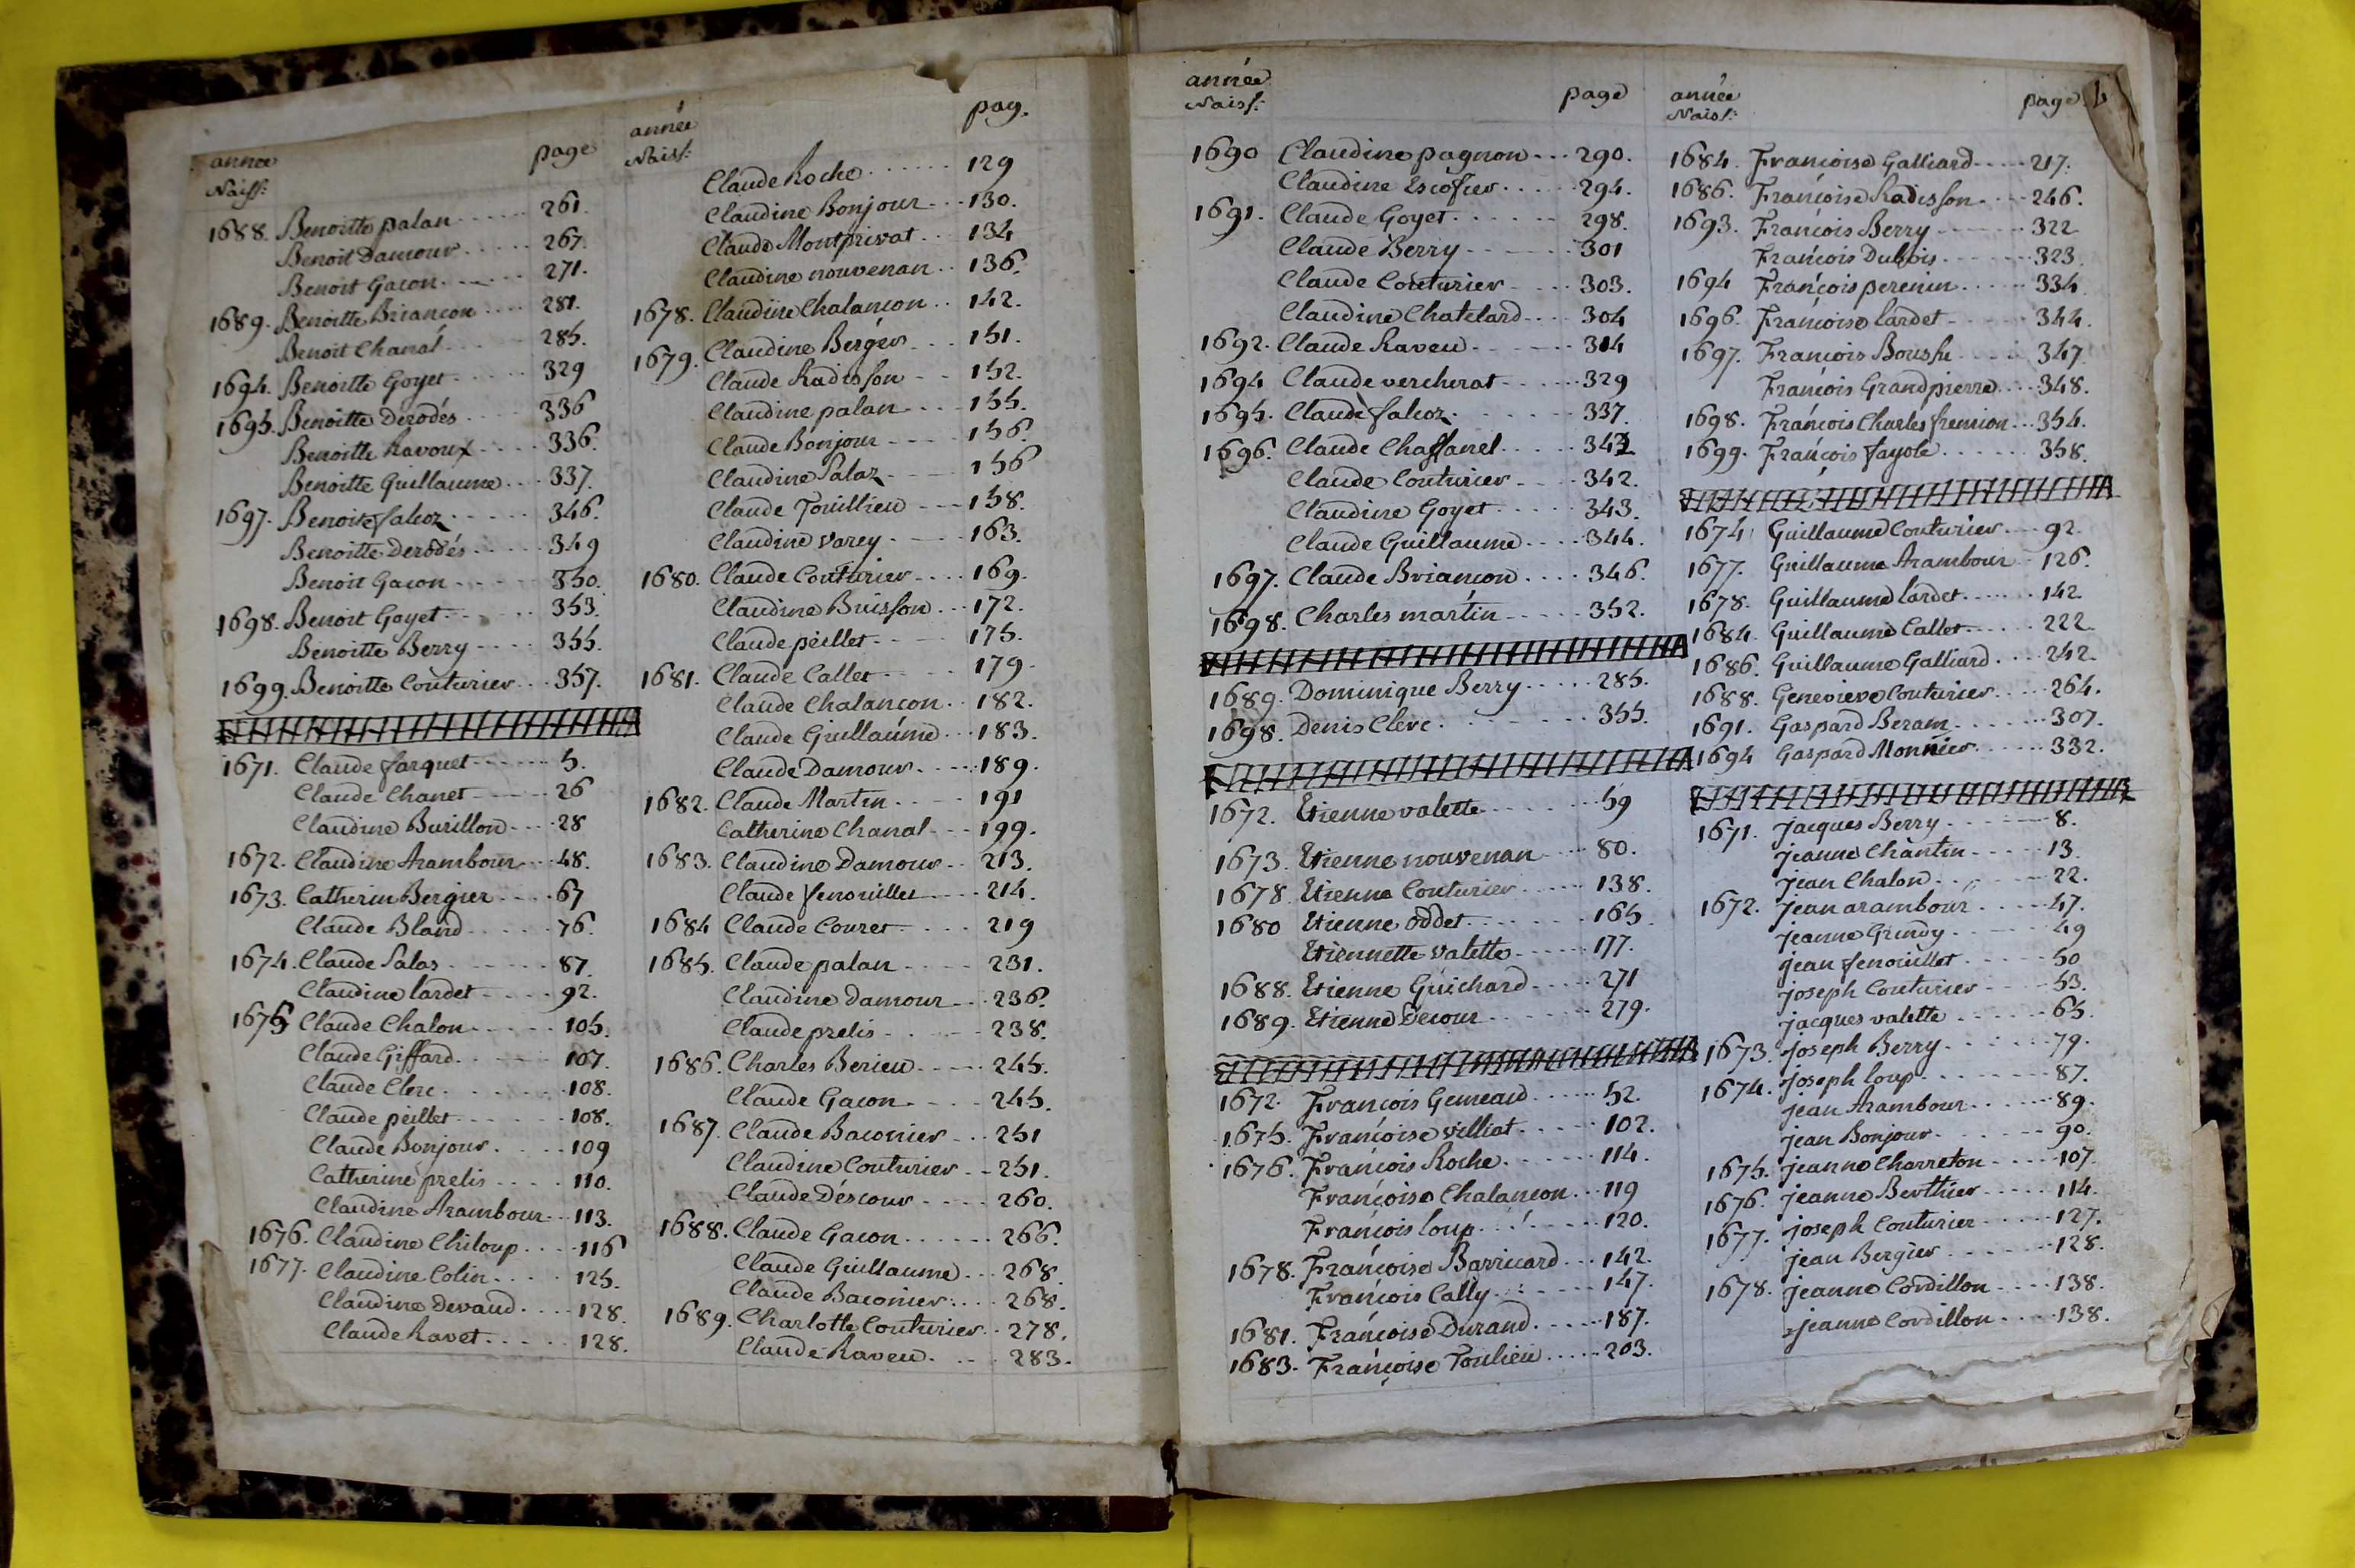 année page
Naiss:
1688. Benoitte palan 261.
Benoit Damour 267.
Benoit Gacon 271.
1689. Benoitte Briancon 281.
Benoit Chanal 285.
1694. Benoitte Goyet 329
1695. Benoitte Derodés 336
Benoitte Ravoux 336.
Benoitte Guillaume 337.
1697. Benoite falcoz 346.
Benoitte Derodés 349
Benoit Gacon 350.
1698. Benoit Goyet 353.
Benoitte Berry 355.
1699. Benoitte Couturier 357.
1671. Claude farquet 5.
Claude Chanet 26
Claudine Burillon 28
1672. Claudine Arambour 48.
1673. Catherin Bergier 67
Claude Bland 76.
1674. Claude Salas 87.
Claudine lardet 92.
1675 Claude Chalon 105.
Claude Giffard 107.
Claude Clerc 108.
Claude peillet 108.
Claude Bonjour 109
Catherine prelis 110.
Claudine Arambour 113.
1676. Claudine Chiloup 116
1677. Claudine Colin 125.
Claudine Devaud 128.
Claude Ravet 128.
année pag.
Naiss:
Claude Roche 129
Claudine Bonjour 130.
Claude Montprivat 134
Claudine nouvenan 136.
1678. Claudine Chalancon 142.
1679. Claudine Bergér 151.
Claude Radisson 152.
Claudine palan 155.
Claude Bonjour 156.
Claudine Salaz 156
Claude Touillieu 158.
Claudine Varey 163.
1680. Claude Couturier 169.
Claudine Buisson 172.
Claude peillet 175.
1681. Claude Callet 179.
Claude Chalancon 182.
Claude Guillaume 183.
Claude Damour 189.
1682. Claude Martin 191
Catherine Chanal 199.
1683. Claudine Damour 213.
Claude fenouillet 214.
1684 Claude Couret 219
1685. Claude palan 231.
Claudine Damour 236.
Claude prelis 238.
1686. Charles Berieu 245.
Claude Gacon 245.
1687. Claude Baconier 251
Claudine Couturier 251.
Claude Déscour 260.
1688. Claude Gacon 266.
Claude Guillaume 268.
Claude Baconier 268.
1689. Charlotte Couturier 278.
Claude Raveu 283.
année page
Naiss:
1690 Claudine pagnon 290.
Claudine Escofier 294.
1691. Claude Goyet 298.
Claude Berry 301
Claude Couturier 303.
Claudine Chatelard 304
1692. Claude Raveu 304
1694 Claude vercherat 329
1695. Claude falcoz 337.
1696. Claude Chaffanel 342
Claude Couturier 342.
Claudine Goyet 343.
Claude Guillaume 344.
1697. Claude Briancon 346.
1698. Charles martin 352.
1689. Dominique Berry 285.
1698. Denis Clerc 355.
1672. Etienne valette 59
1673. Etienne nouvenan 80.
1678. Etienne Couturier 138.
1680 Etienne oddet 165.
Etiennette Valette 177.
1688. Etienne Guichard 271
1689. Etienne Decour 279.
1672. Francois Gemeaud 52.
1675. Francoise villiat 102.
1676. Francois Roche 114.
Francoise Chalancon 119
Francois loup 120.
1678. Francoise Barricard 142.
Francois Cally 147.
1681. Francoise Durand 187.
1683. Francoise Toulieu 203.
année page
Naiss:
1684. Francoise Galliard 217.
1686. Francoise Radisson 246.
1693. Francois Berry 322
Francois Dubois 323.
1694 Francois perenin 334.
1696. Francoise lardet 344.
1697. Francois 347
Francois Grandpierre 348.
1698. Francois Charles fremion 354.
1699. Francois fayole 358.
1674 Guillaume Couturier 92.
1677. Guillaume Arambour 126.
1678. Guillaume lardet 142
1684. Guillaume Callet 222
1686. Guillaume Galliard 242.
1688. Genevieve Couturier 264.
1691. Gaspard Beram 307.
1694 Gaspard Monnier 332.
1671. Jacques Berry 8.
jeanne Chantin 13.
jean Chalon 22.
1672. jean arambour 47.
jeanne Grindy 49
jean fenouillet 50
joseph Couturier 53.
jacques valette 65.
1673. joseph Berry 79.
1674. joseph loup 87.
jean Arambour 89.
jean Bonjour 90.
1675. jeanne Charreton 107.
1676. jeanne Berthier 114.
1677. joseph Couturier 127.
jean Bergier 128.
1678. jeanne Cordillon 138.
jeanne Cordillon 138.